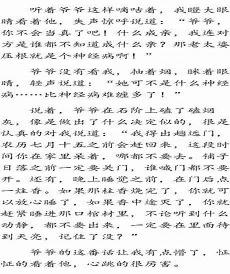 听着爷爷这样嘀咕着，我瞪大眼
睛看着他，失声惊呼说道：“爷爷，
你不会当真了吧！什么成亲，我连对
方是谁都不知道成什么亲？那老太婆
压根就是个神经病啊！”
爷爷没有看我，抽着烟，眯着眼
睛，轻声说道：“她可不是什么神经
病……比神经病难缠多了！”
说着，爷爷在石阶上磕了磕烟
灰，像是做出了什么决定似的，很是
认真的对我说道：“我得出趟远门，
农历七月十五之前会赶回来，这段时
间你在家里呆着，哪都不要去。铺子
日落之前一定要关门，谁喊门都不要
开。还有，晚上睡觉之前，在门后点
一炷香。如果那柱香烧完了，你就可
以放心睡了，如果香中途灭了，你就
赶紧睡进那口棺材里，不论听到什么
动静，都不要出来，一定要在里面待
到天亮，记住了没？”
爷爷的这番话让我有点懵了，怔
怔的看着他，心跳的很厉害。